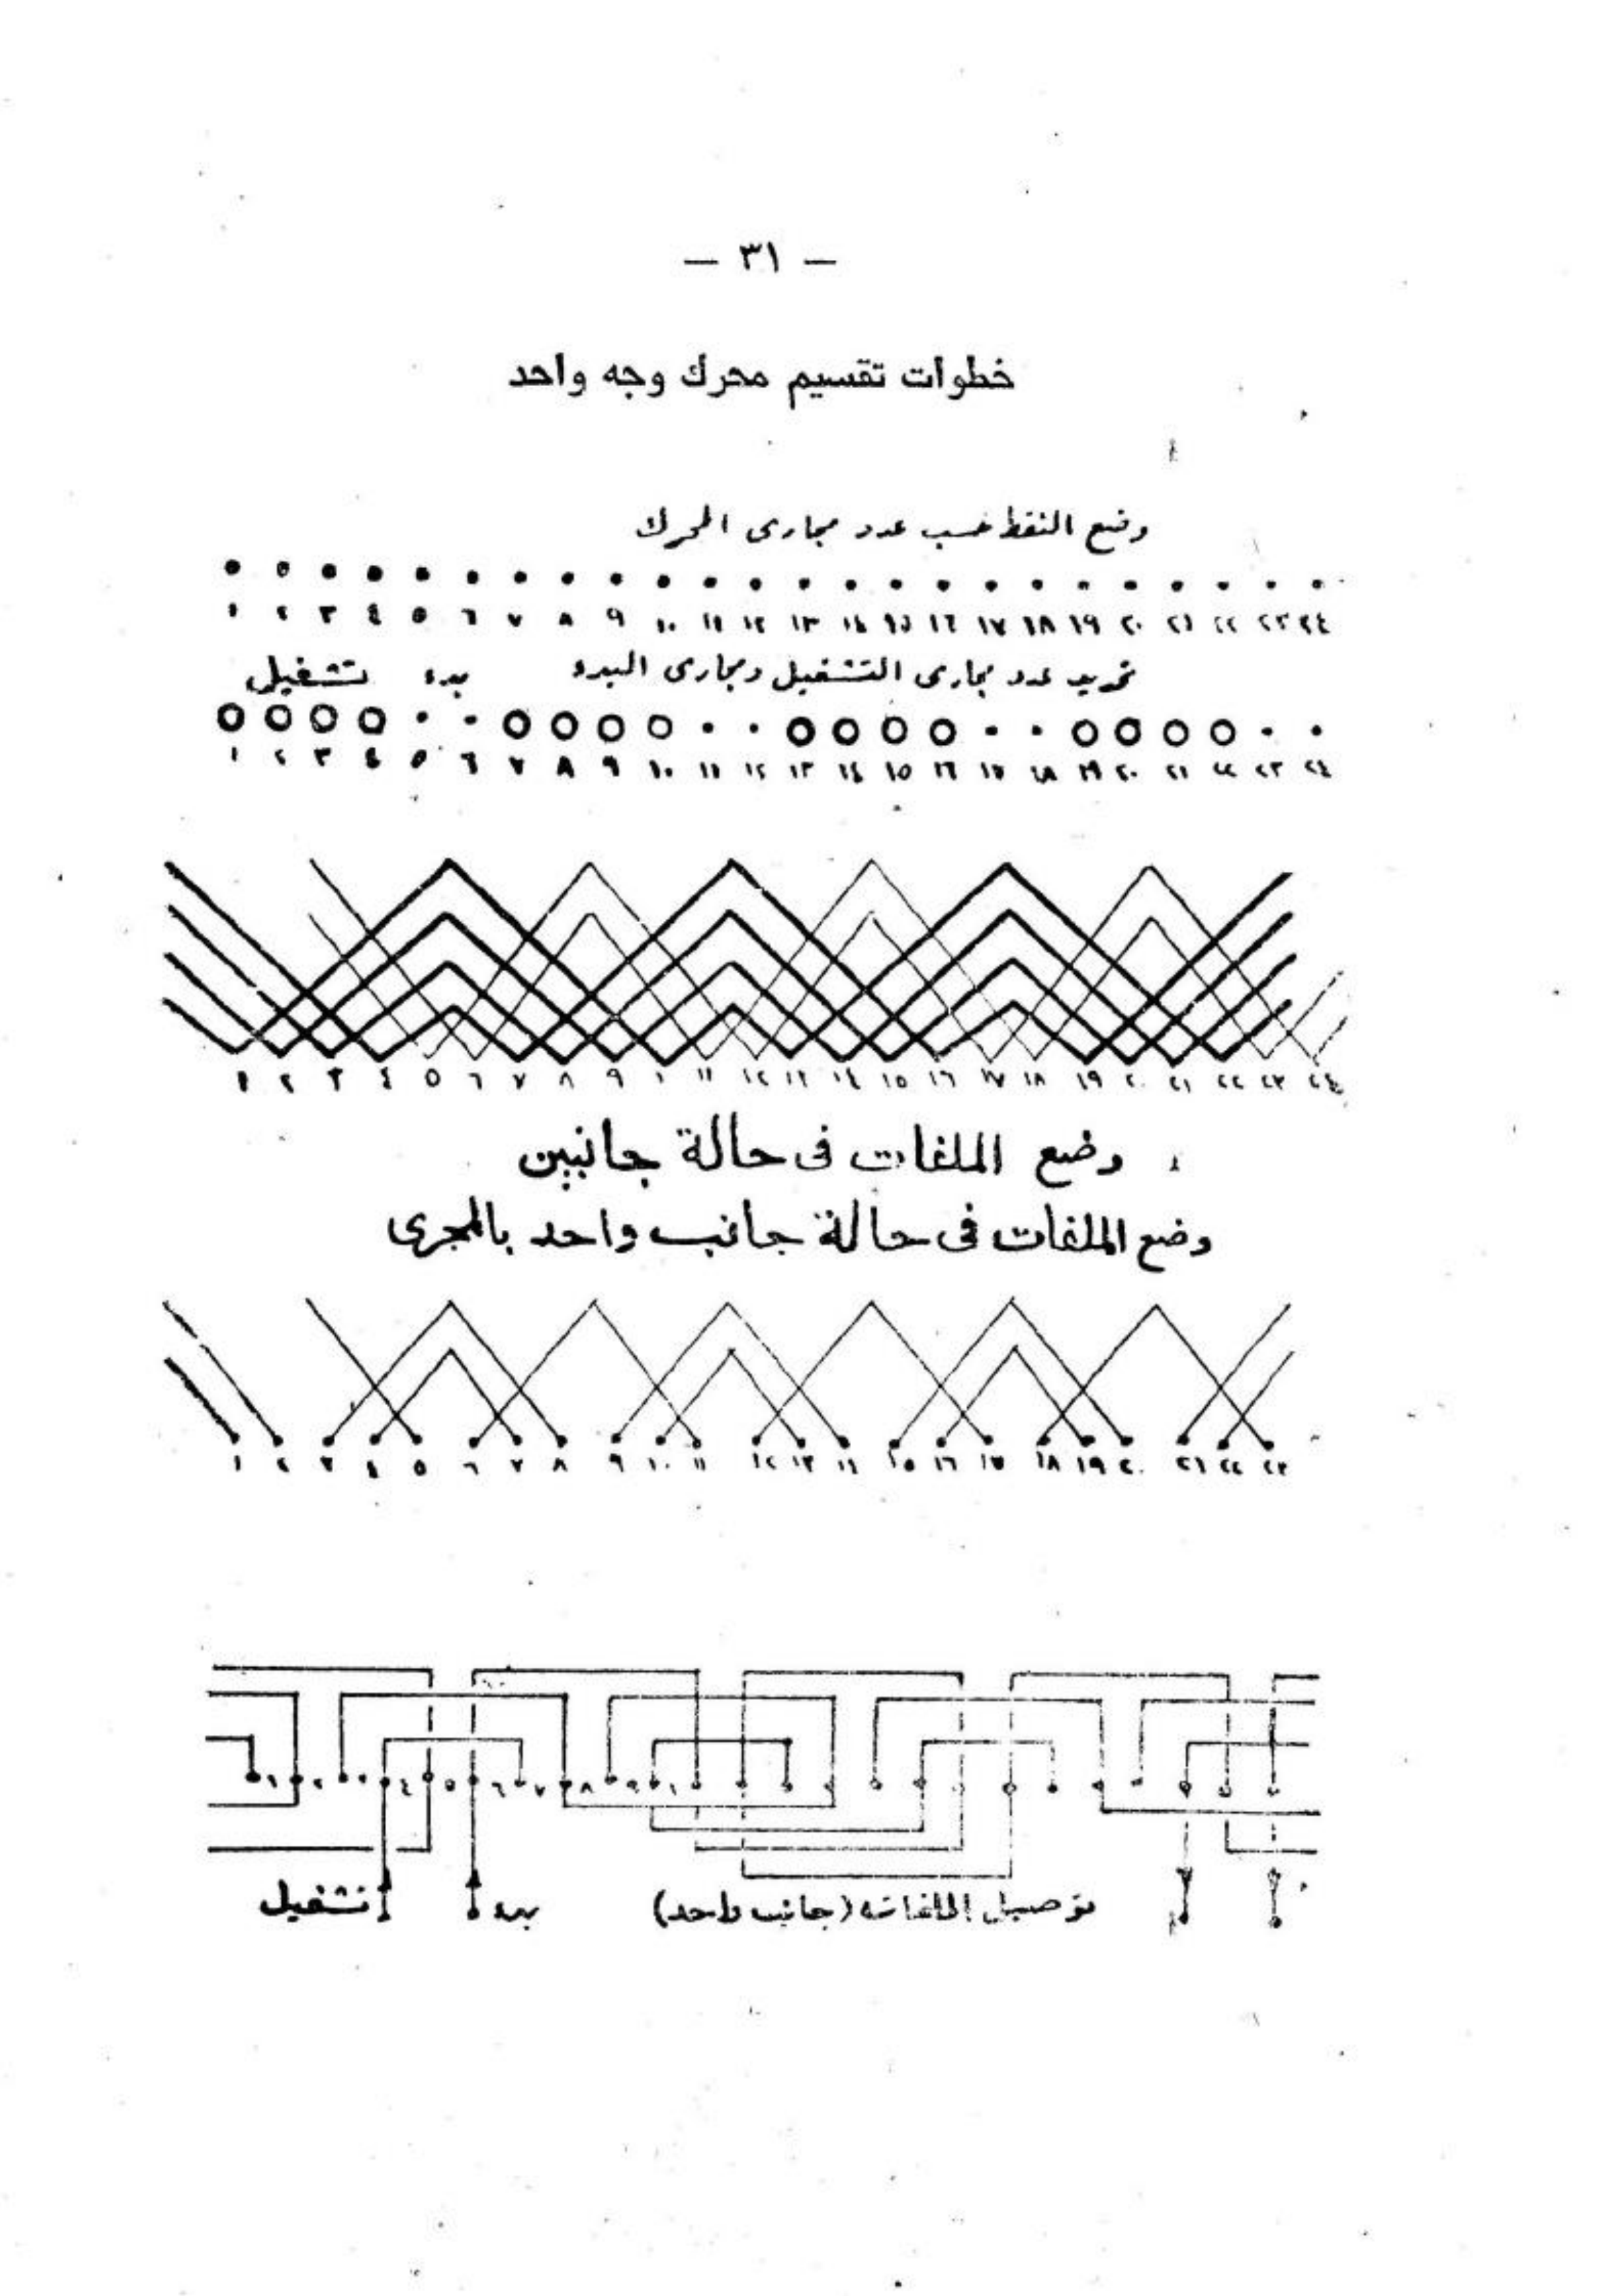 — ٣١ —
خطوات تقسيم محرك وجه واحد
وضع النقط حسب عدد مجارى المحرك
١ ٢ ٣ ٤ ٥ ٦ ٧ ٨ ٩ ١٠ ١١ ١٢ ١٣ ١٤ ١٥ ١٦ ١٧ ١٨ ١٩ ٢٠ ٢١ ٢٢ ٢٣ ٢٤
تحديد عدد مجارى التشغيل ومجارى البدء
بدء تشغيل
١ ٢ ٣ ٤ ٥ ٦ ٧ ٨ ٩ ١٠ ١١ ١٢ ١٣ ١٤ ١٥ ١٦ ١٧ ١٨ ١٩ ٢٠ ٢١ ٢٢ ٢٣ ٢٤
١ ٢ ٣ ٤ ٥ ٦ ٧ ٨ ٩ ١٠ ١١ ١٢ ١٣ ١٤ ١٥ ١٦ ١٧ ١٨ ١٩ ٢٠ ٢١ ٢٢ ٢٣ ٢٤
وضع الملفات فى حالة جانبين
وضع الملفات فى حالة جانب واحد بالمجرى
١ ٢ ٣ ٤ ٥ ٦ ٧ ٨ ٩ ١٠ ١١ ١٢ ١٣ ١٥ ١٦ ١٧ ١٨ ١٩ ٢٠ ٢١ ٢٢ ٢٣
١ ٢ ٤ ٥ ٦ ٧ ٨ ٩
تشغيل
بدء
توصيل الملفات (جانب واحد)